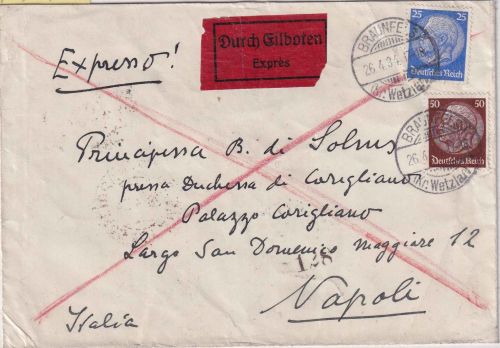 Expresso!
Durch Eilboten
Exprès
25 25
Deutsches Reich
BRAUNFELS
26.4.3
(Kr. Wetzlar)
50 50
Deutsches Reich
BRAUNFELS
26.
(Kr. Wetzlar)
Principessa B. di Solms
pressa Duchessa di Corigliano
Palazzo Corigliano
Largo San Domenico Maggiore 12
128
Napoli
Italia